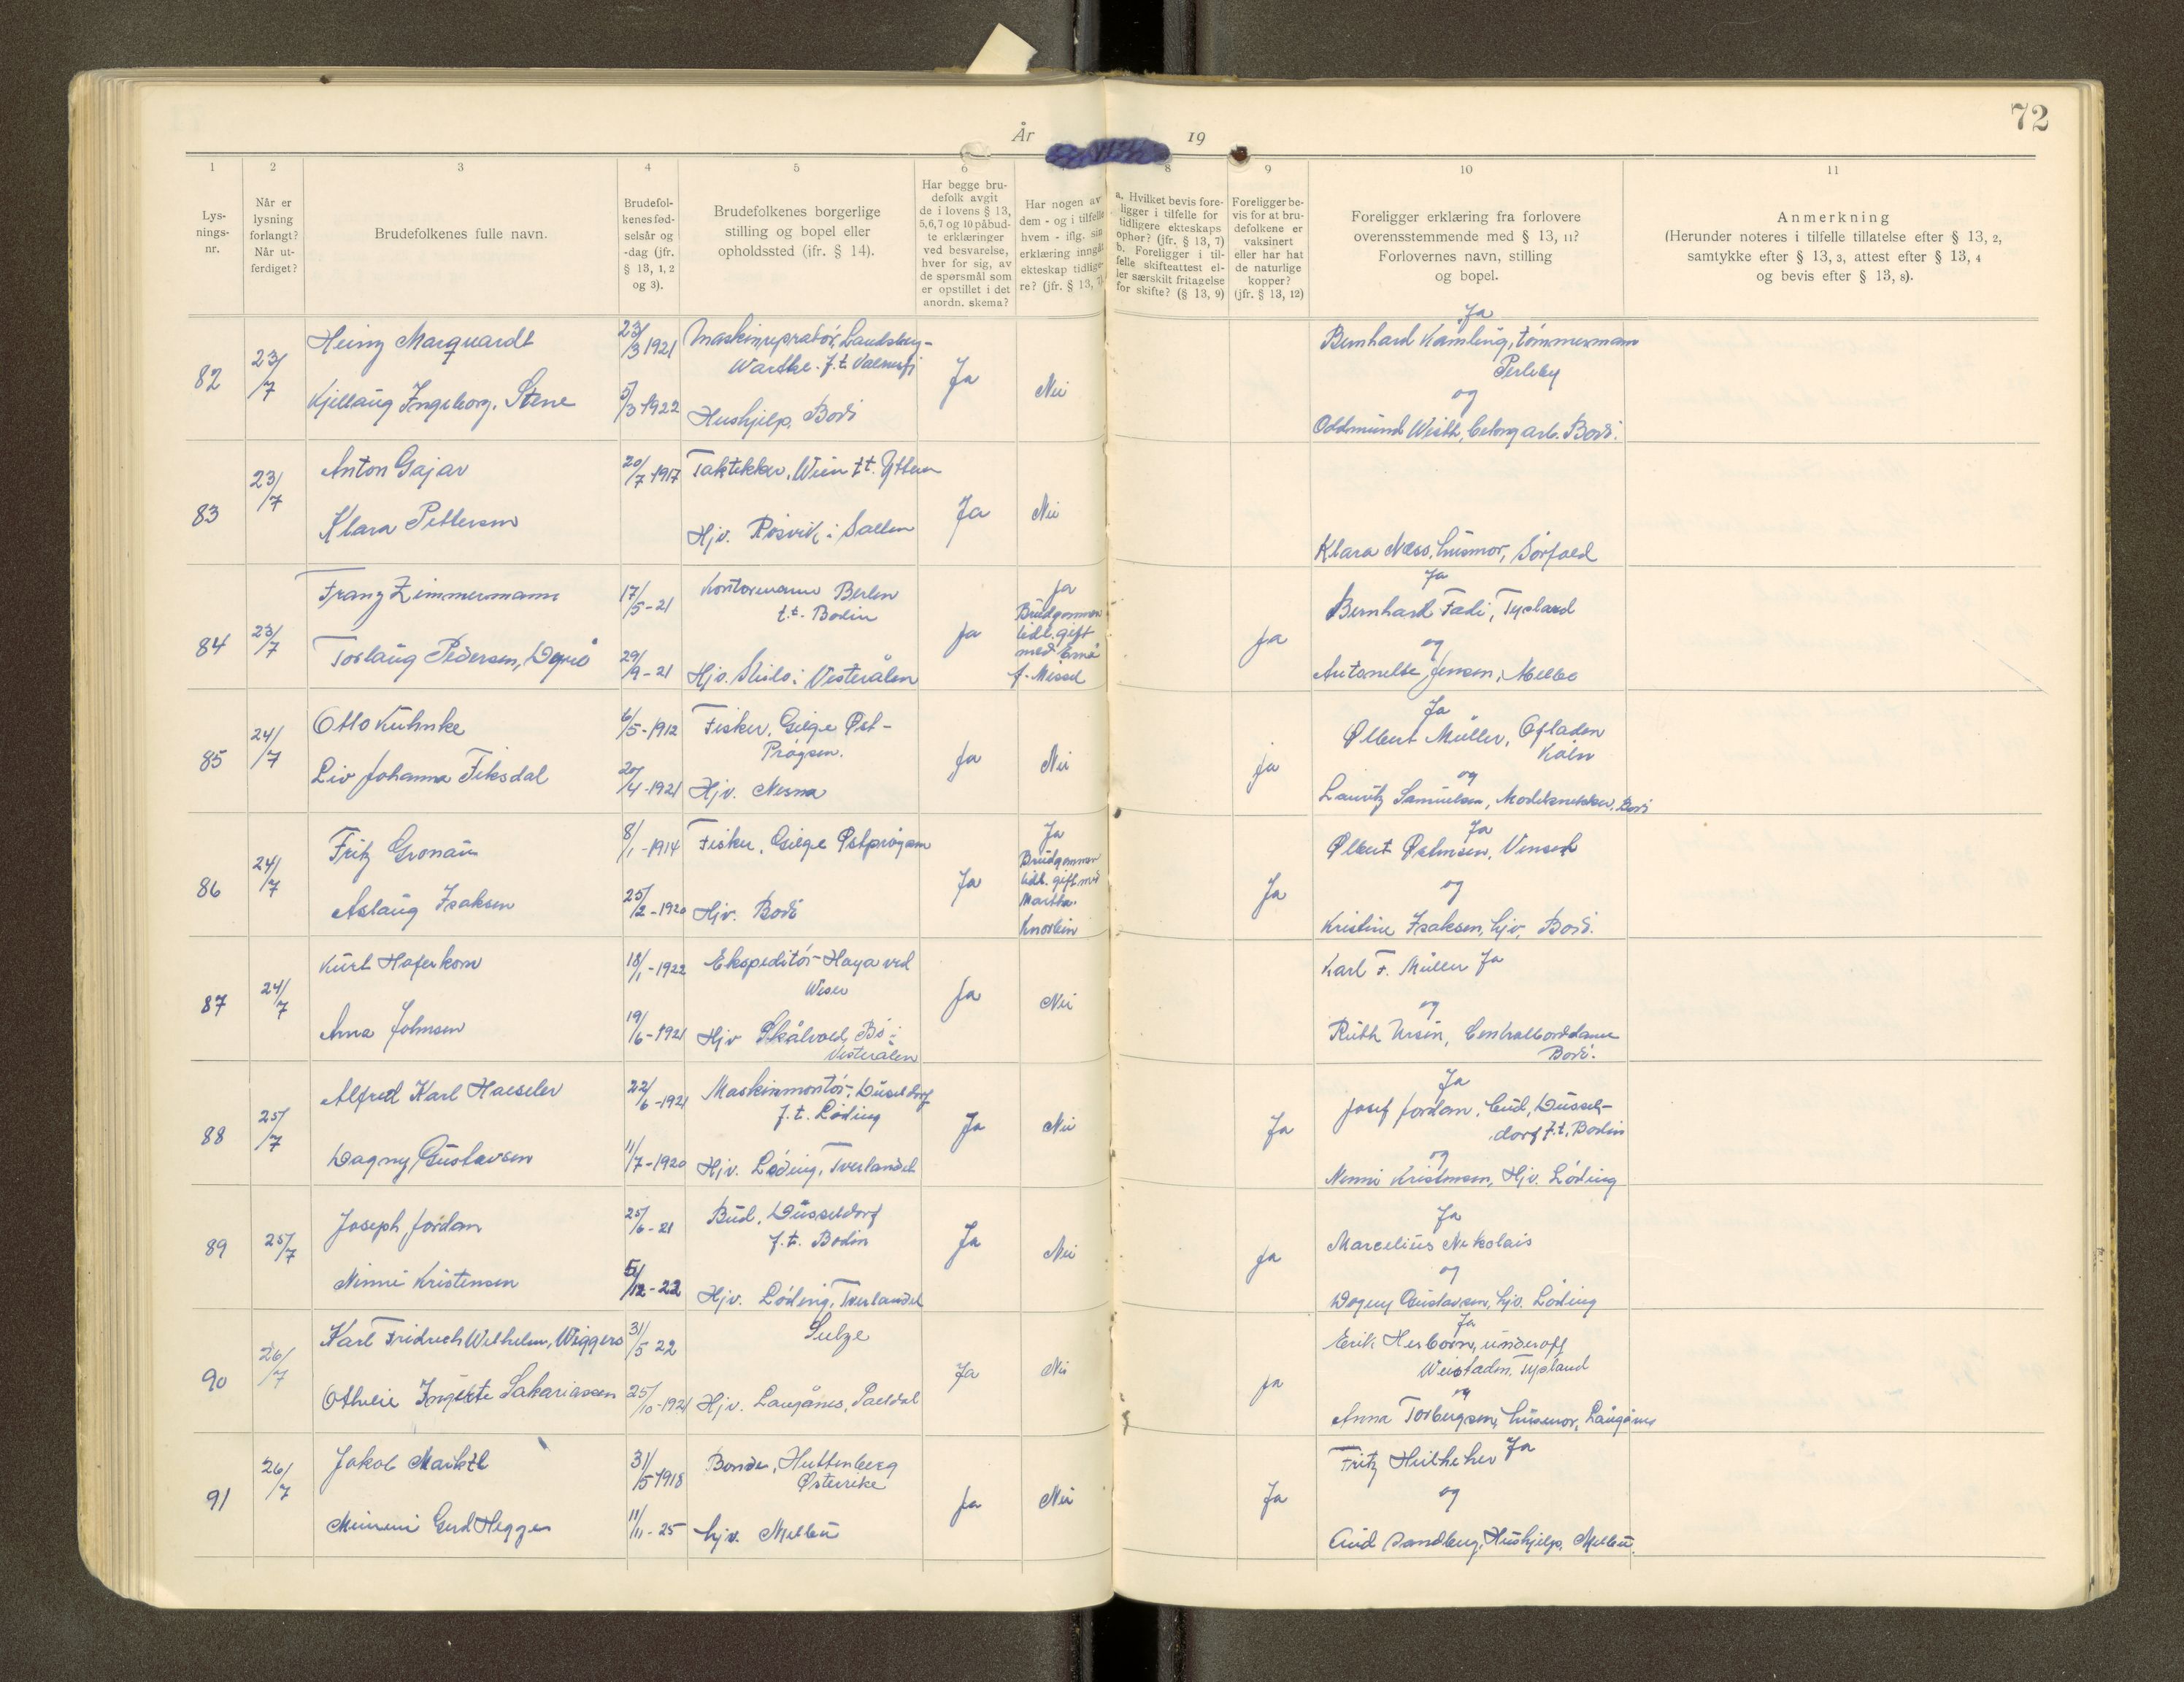 72
År 19
1 2 3 4 5 6 8 9 10 11
Lys-
nings-
nr.
Når er
lysning
forlangt?
Når ut-
ferdiget?
Brudefolkenes fulle navn.
Brudefol-
kenes fød-
selsår og
-dag (jfr.
§ 13, 1, 2
og 3).
Brudefolkenes borgerlige
stilling og bopel eller
opholdssted (jfr. § 14).
Har begge bru-
defolk avgit
de i lovens § 13,
5,6,7 og 10 påbud-
te erklæringer
ved besvarelse,
hver for sig, av
de spørsmål som
er opstillet i det
anordn. skema?
Har nogen av
dem - og i tilfelle
hvem - iflg. sin
erklæring inngåt
ekteskap tidlige-
re? (jfr. § 13, 7).
a. Hvilket bevis fore-
ligger i tilfelle for
tidligere ekteskaps
ophør? (jfr. § 13, 7)
b. Foreligger i til-
felle skifteattest el-
ler særskilt fritagelse
for skifte? (§ 13, 9)
Foreligger be-
vis for at bru-
defolkene er
vaksinert
eller har hat
de naturlige
kopper?
(jfr. § 13, 12)
Foreligger erklæring fra forlovere
overensstemmende med § 13, 11?
Forlovernes navn, stilling
og bopel.
Anmerkning
(Herunder noteres i tilfelle tillatelse efter § 13, 2,
samtykke efter § 13, 3, attest efter § 13, 4
og bevis efter § 13, 8).
82
23/7
Heinz Marquardt
Kjellaug Ingeborg. Stene
23/3 1921
5/3 1922
Maskinreparatør, Landsberg-
Warthe. f.t.
Hushjelp, Bodø
Ja
Nei
Ja
Bernhard Kamling, tømmermann
Perleby
og
Oddmund Wisth, betongarb. Bodø.
83
23/7
Anton Gajar
Klara Pettersen
20/7 1917
Taktekker, Wien t.t. Ytteren
Hjv. Røsvik i Salten
Ja
Nei
Klara Næss, husmor, Sørfold
84
23/7
Franz Zimmermann
Torlaug Pedersen,
17/5-21
29/9-21
Kontormann Berlin
t.t. Bodin
Hjv. i Vesterålen
Ja
Ja
Brudgommen
tidl. gift
med Erna
f. Missel
Ja
Ja
Bernhard Fadi, Tyskland
og
Antonette Jensen, Melbo
85
24/7
Otto Kuhnke
Liv Johanna Fiksdal
6/5-1912
20/4-1921
Fisker, Gilge Øst-
Prøysen.
Hjv. Nesna
Ja
Nei
Ja
Ja
Olbert Müller, Ofladen
Køln
og
Lauritz Samuelsen, Modelsnekker, Bodø
86
24/7
Fritz Gronau
Aslaug Isaksen
8/1-1914
25/2-1920
Fisker, Gilge Østprøysen
Hjv. Bodø
Ja
Ja
Brudgommen
tidl. gift med
Martha.
Knorbein
Ja
Ja
Olbert
og
Kristine Isaksen, hjv, Bodø.
87
24/7
Kurt Haferkorn
Anna Johnsen
18/1-1922
19/6-1921
Ekspeditør Haya ved
Weser
Hjv Skålvold, Bø i
Vesterålen
Ja
Nei
Karl F. Müller Ja
og
Ruth Ursin, Centralborddame
Bodø.
88
25/7
Alfred Karl Haeseler
Dagny Gustavsen
22/6-1921
11/7-1920
Maskinmontør, Düsseldorf
f.t. Løding
Hjv. Løding, Tverlandet
Ja
Nei
Ja
Ja
Josef Jordan, bud, Düssel-
dorf f.t. Bodin
og
Ninni Kristensen, Hjv. Løding
89
25/7
Joseph Jordan
Ninni Kristensen
25/6-21
5/12-22
Bud, Düsseldorf
f.t. Bodin
Hjv. Løding, Tverlandet
Ja
Nei
Ja
Ja
Marcelius Nikolais
og
Dagny Gustavsen, hjv. Løding
90
26/7
Karl Fridrich Wilhelm, Wiggers
Othelie Ingerte Sakariassen
31/5 22
25/10-1921
Sulze
Hjv. Langånes, Saltdal
Ja
Nei
Ja
Ja
Erik Herborn, underoff
Weistaden, Tyskland
og
Anna Torbergsen, husmor, Langånes
91
26/7
Jakob Marktl
Mimmi Gerd Hegge
31/5 1918
11/11-25
Bonde, Huttenberg
Østerrike
hjv. Melbu
Ja
Nei
Ja
Fritz Heitheker Ja
og
Aud Sandberg, Hushjelp, Melbu.